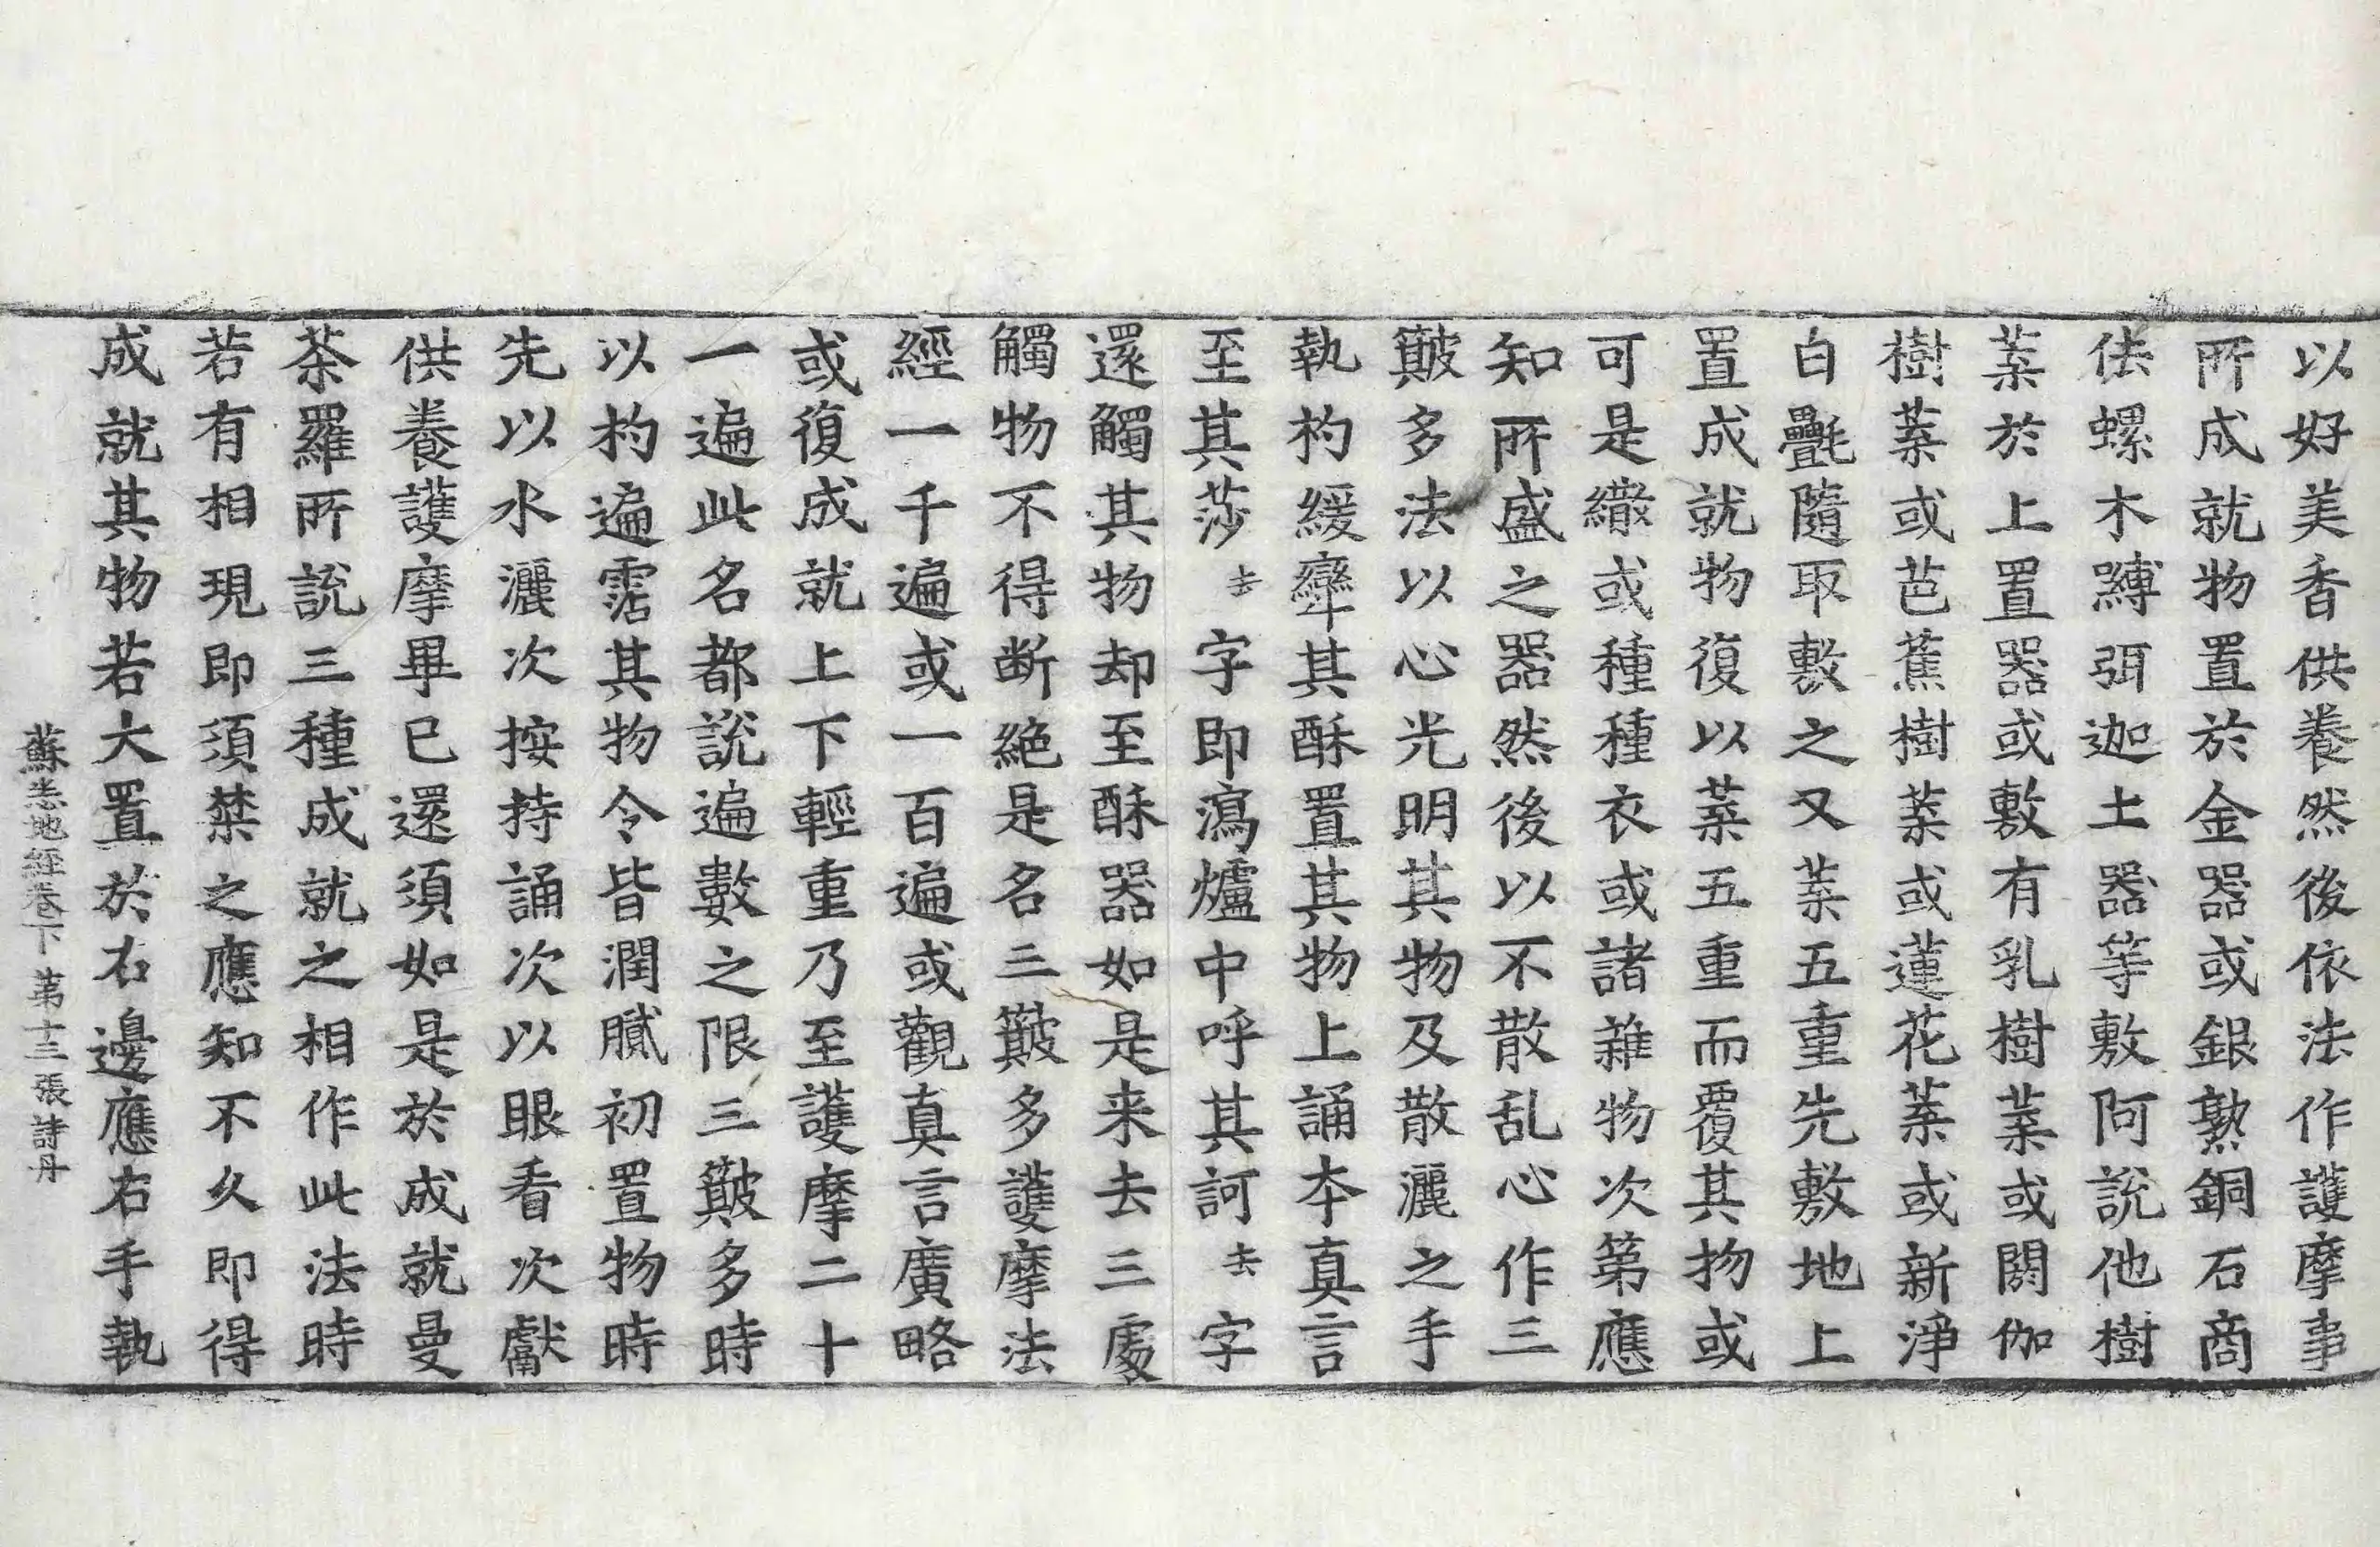 以好美香供養然後依法作護摩事
所成就物置於金器或銀熟銅石商
佉螺木𨄔弭迦土器等敷阿說他樹
葉於上置器或敷有乳樹葉或閼伽
樹葉或芭蕉樹葉或蓮花葉或新淨
白㲲隨取敷之又葉五重先敷地上
置成就物復以葉五重而覆其物或
可是繖或種種衣或諸雜物次第應
知所盛之器然後以不散乱心作三
簸多法以心光明其物及散灑之手
執杓緩攣其酥置其物上誦本真言
至其莎去字即瀉爐中呼其訶去字
還觸其物却至酥器如是来去三處
觸物不得断絶是名三簸多護摩法
經一千遍或一百遍或觀真言廣略
或復成就上下輕重乃至護摩二十
一遍此名都說遍數之限三簸多時
以杓遍霑其物令皆潤膩初置物時
先以水灑次按持誦次以眼看次獻
供養護摩畢已還須如是於成就曼
荼羅所說三種成就之相作此法時
若有相現即須禁之應知不久即得
成就其物若大置於右邊應右手執
蘇悉地經卷下 第十三張 詩 丹